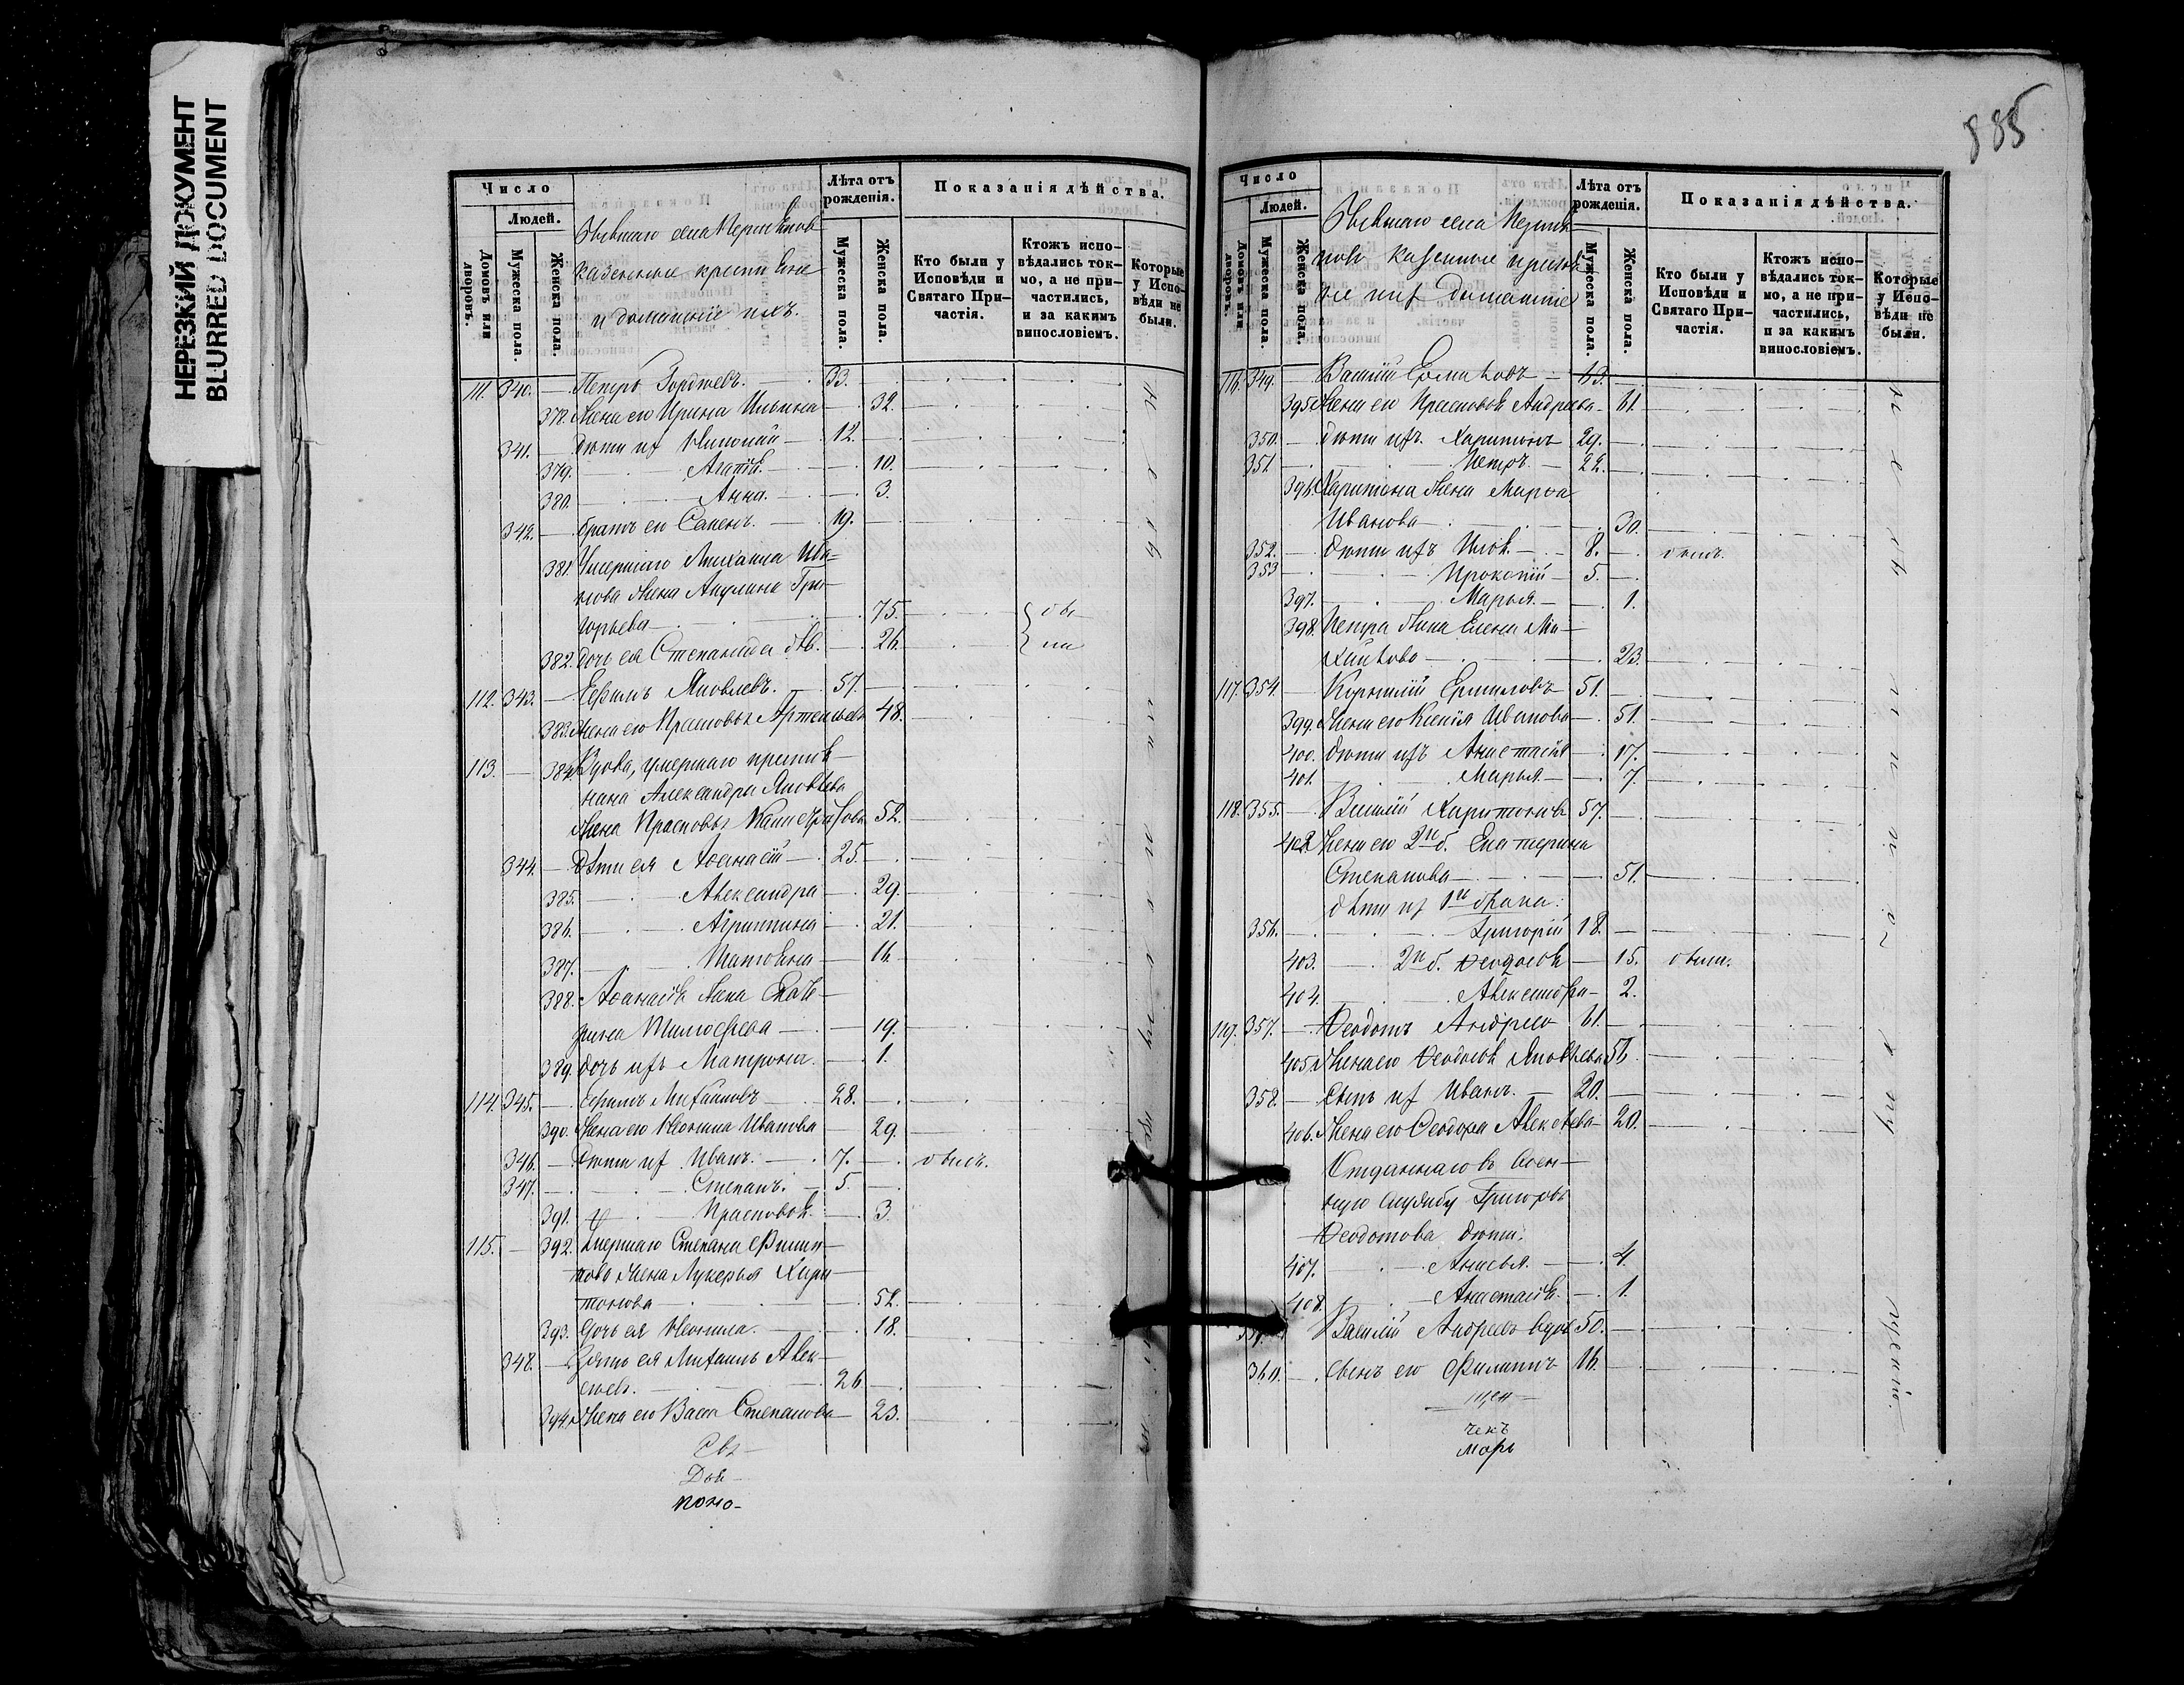 НЕРЕЗКИЙ ДОКУМЕНТ
BLURRED DOCUMENT
885
Число
Людей.
Домовъ или дворовъ.
Мужеска пола.
Женска пола.
казенные
и домашніе ихъ.
Лѣта отъ рожденія.
Мужеска пола.
Женска пола.
Показанія дѣйства.
Кто были у Исповѣди и Святаго При-частія.
Ктожъ испо-вѣдались ток-мо, а не при-частились, и за какимъ винословіемъ.
Которые у Испо-вѣди не были.
111. 340. — Петръ 33.
378. Жена его Ирина Ильина — 32.
341. — Дѣти их 12.
379. Агапія — 10.
380. Анна — 3.
342. — братъ его Семенъ. 19.
381. Умершаго Михаила Ива-
нова жена Акулина Гри-
горьева — 75.
382. дочь ея Степанида дѣв. — 26.
112. 343. — Ефимъ Яковлевъ. 57.
383. Жена его Прасковья 48.
113. — 384. Вдова, умершаго
нина Александра Яковлева
жена Прасковья 52.
344. — Дѣти ея Аѳанасій — 25.
385. Александра — 29.
386. Агриппина — 21.
387. Татьяна — 16.
388. Аѳанасія жена Екате-
рина Тимофеева — 19.
389. дочь ихъ Матрона. — 1.
114. 345. — Ефимъ Михайловъ 28.
390. Жена его Неонила Иванова — 29.
346. — Дѣти их Иванъ. 7. — былъ.
347. Степанъ. 5.
391. Прасковья — 3.
115. — 392. Умершаго Степана Филип-
пова жена Лукерья Хари-
тонова — 52.
393. Дочь ея Неонила. — 18.
348. — Зять ея Михаилъ Алек-
сеевъ. 26
394. Жена его Васса Степанова — 23.
Свя-
Дья-
поно-
Число
Людей.
Домовъ или дворовъ.
Мужеска пола.
Женска пола.
казенные
Лѣта отъ рожденія.
Мужеска пола.
Женска пола.
Показанія дѣйства.
Кто были у Исповѣди и Святаго При-частія.
Ктожъ испо-вѣдались ток-мо, а не при-частились, и за какимъ винословіемъ.
Которые у Испо-вѣди не были.
116. 349. — Василій 63.
395. Жена его Прасковья Андреева — 61.
350. — Дѣти ихъ Харитонъ 29.
351 Петръ — 22.
396. Харитона жена Марѳа
Иванова — 30.
352. — Дѣти ихъ Илья — 8. — былъ.
353 Прокопій — 5.
397. Марья — 1.
398. Петра жена Елена Ми-
хайлова — 23.
117. 354 Корнилій Ермиловъ 51.
399. Жена его Ксенія Иванова — 51.
400. Дѣти ихъ Анастасія — 17.
401. Марья — 7.
118. 355. — Василій Харитоновъ 57.
402. Жена его 2го б. Екатерина
Степанова — 51.
дѣти их 1го брака:
356. Григорій 18.
403. 2го б. Ѳеодосія — 15. были.
404. Александра — 2.
119. 357. — Ѳеодотъ Андреевъ 61.
405. Жена его Ѳеодосія Яковлева 56
358. — Сынъ их Иванъ. — 20.
406. Жена его Ѳеодора Алексеева — 20.
Отданнаго въ воен-
ную службу Григорья
Ѳеодотова дѣти:
407. Анисья — 4.
408. Анастасія — 1.
Василій Андреевъ вдов 50.
360. — Сынъ его Филиппъ 16.
щен-
чекъ
марь